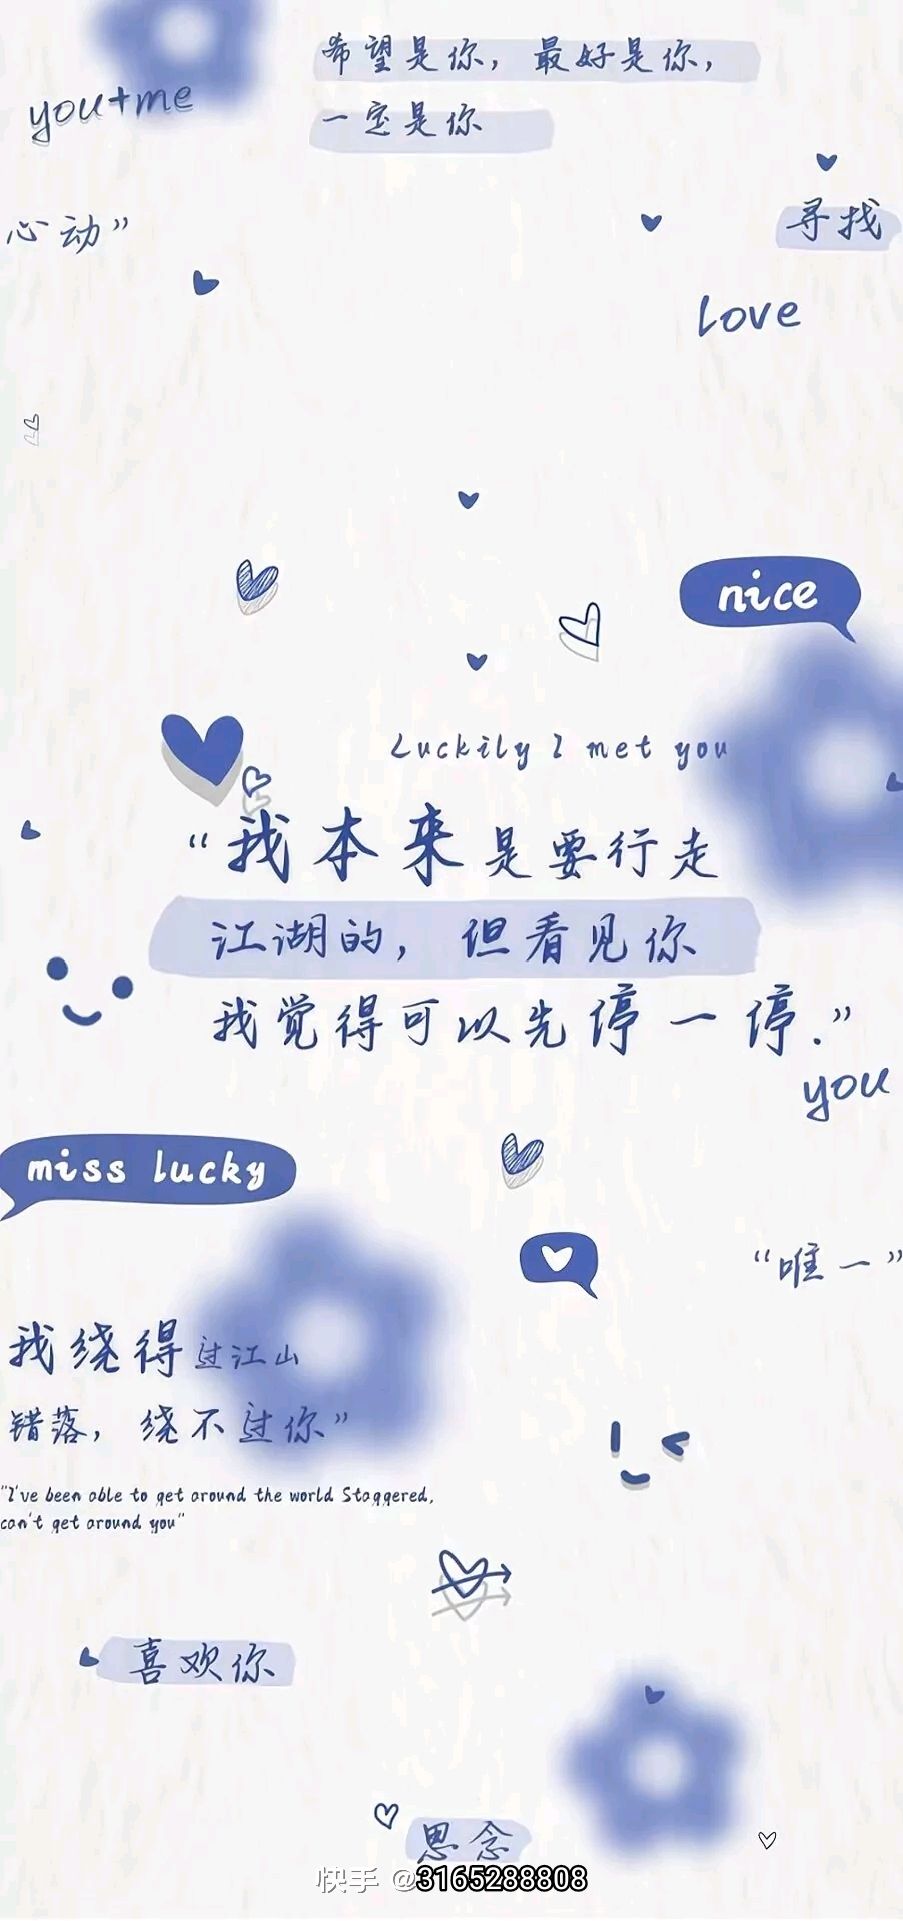 希望是你，最好是你，
一定是你
you+me
心动”
寻找
love
nice
Luckily I met you
“我本来是要行走
江湖的，但看见你
我觉得可以先停一停.”
you
miss lucky
“唯一”
我绕得过江山
错落，绕不过你”
"I've been able to get around the world Staggered,
can't get around you"
喜欢你
思念
快手 @3165288808